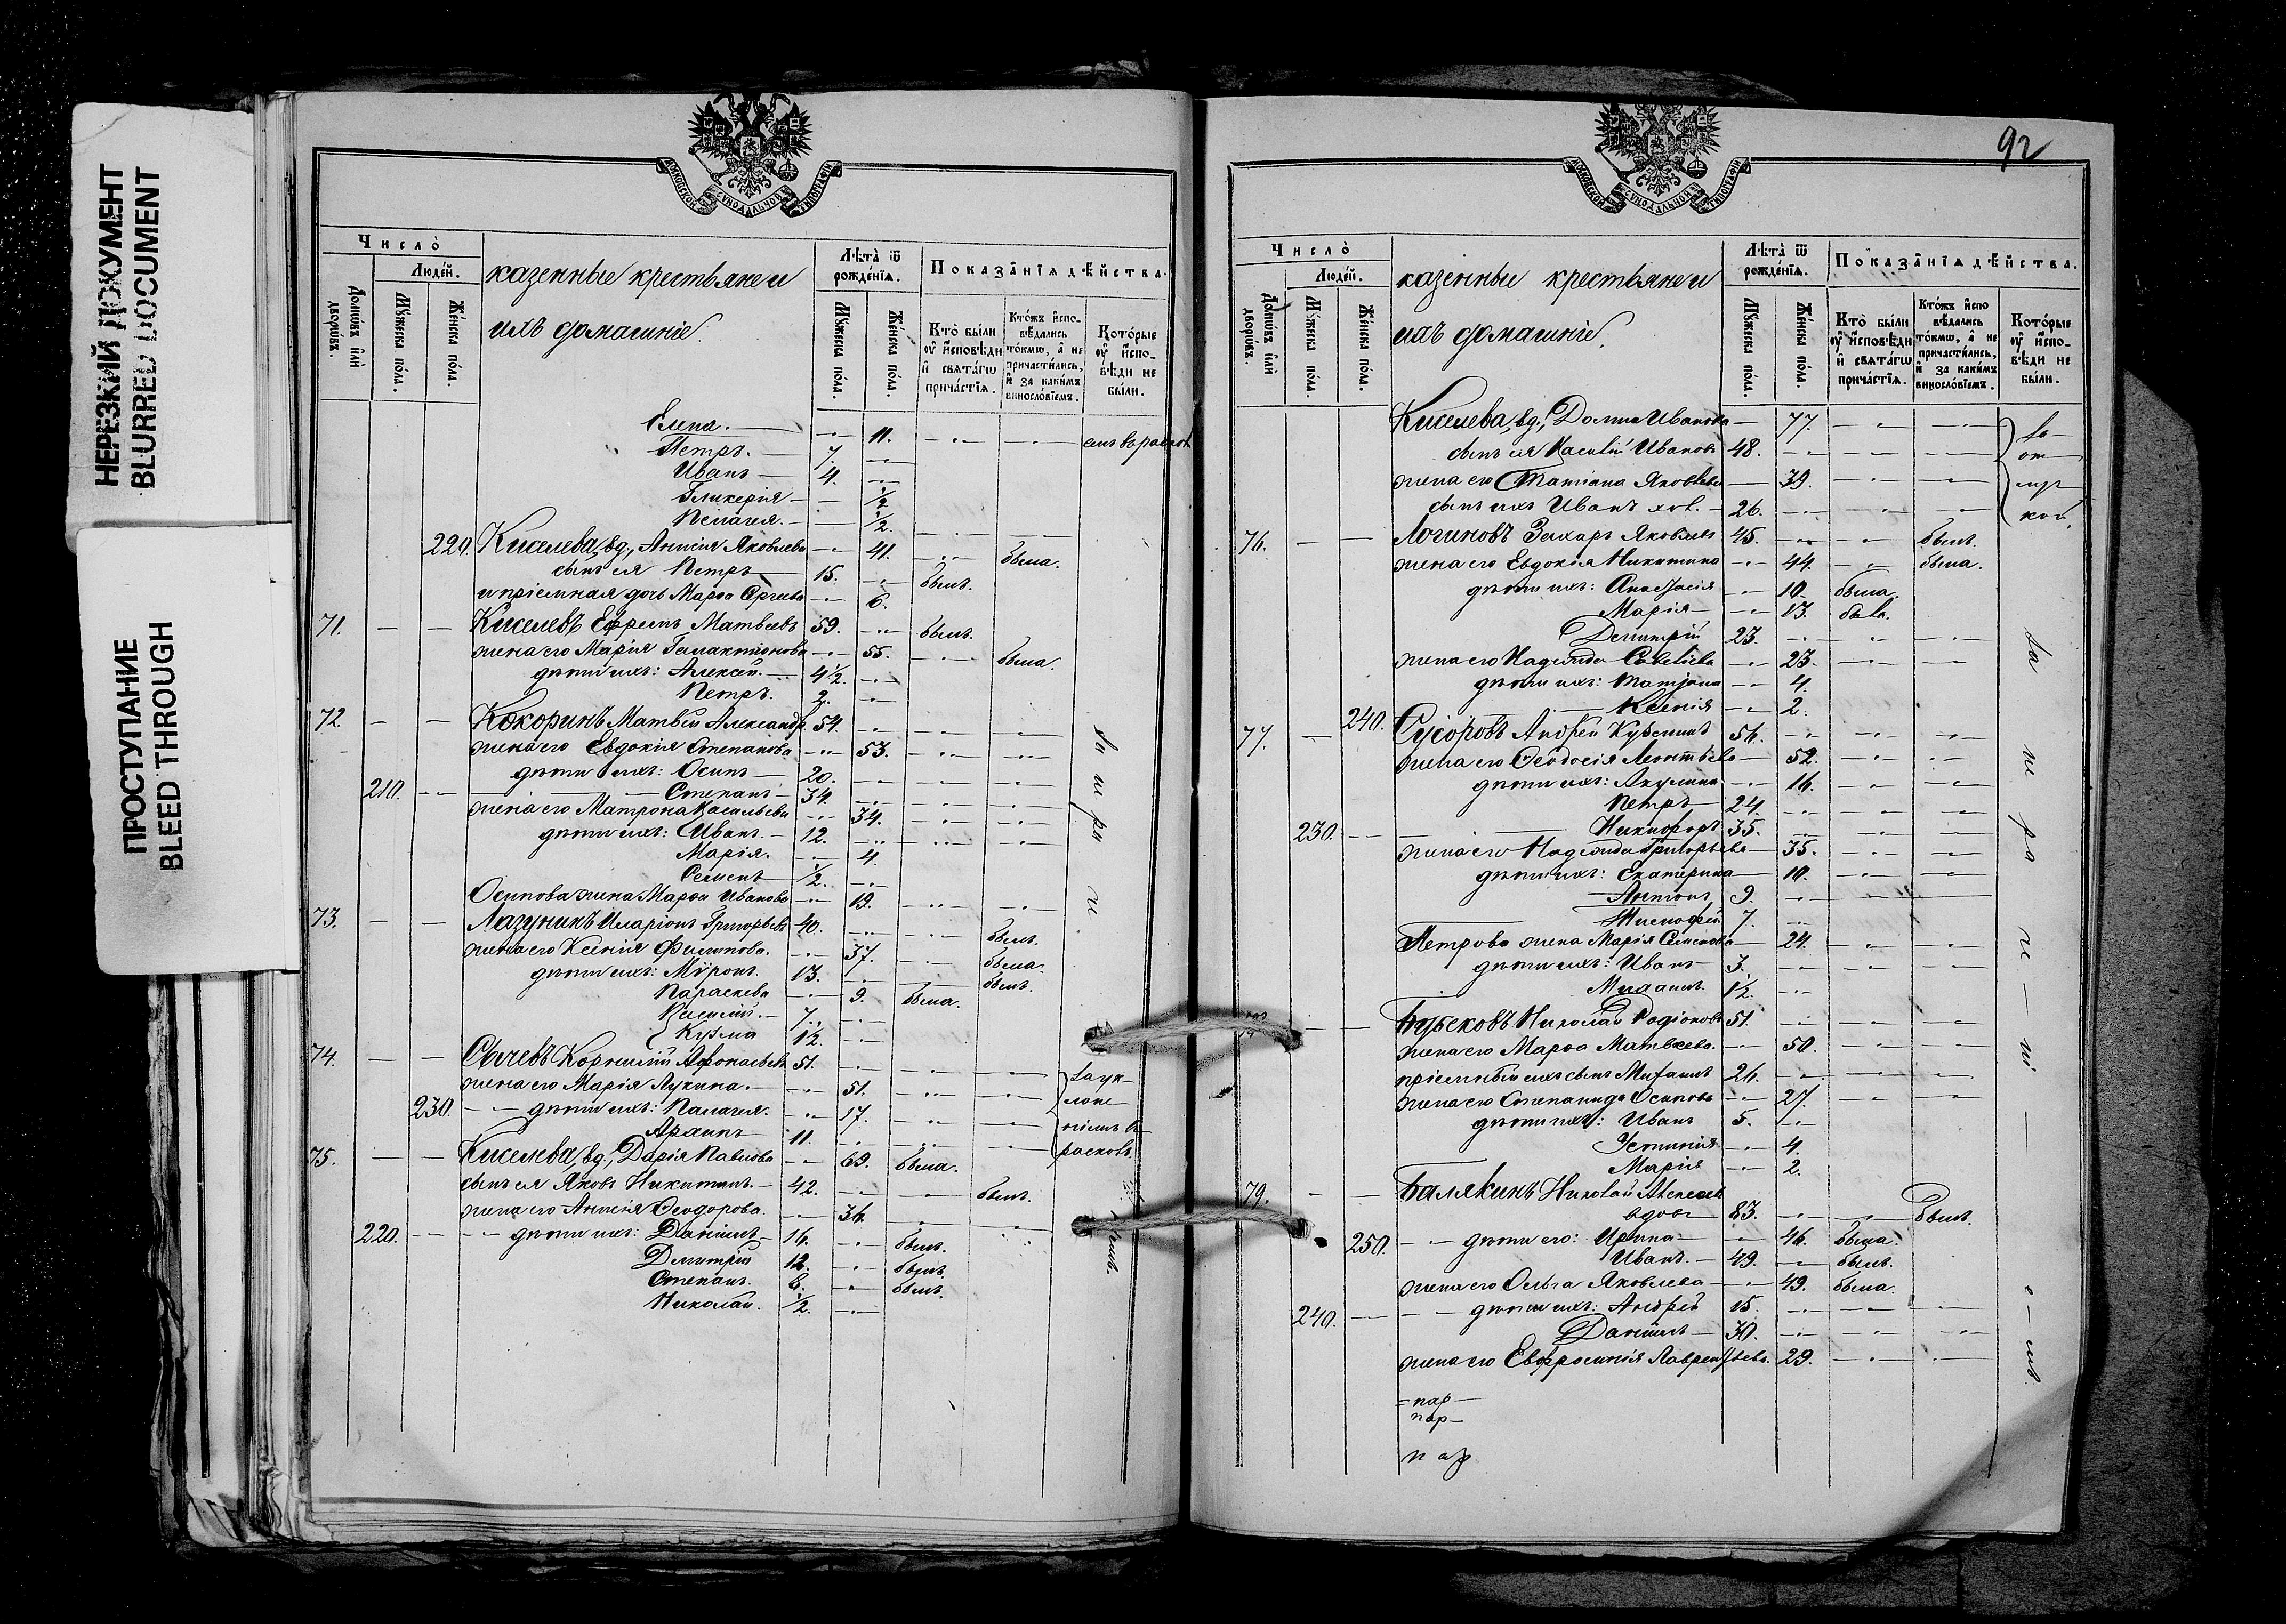 НЕРЕЗКИЙ ДОКУМЕНТ
BLURRED DOCUMENT
ПРОСТУПАНИЕ
BLEED THROUGH
Число̀
Люде́й.
Домѡ́въ и҆лѝ дворѡ́въ.
Мꙋ́жеска по́ла.
Же́нска по́ла.
казенные крестьяне и
ихъ домашніе.
Лѣта̀ ѿ рожде́нїѧ.
Мꙋ́жеска по́ла.
Же́нска по́ла.
Показа̑нїѧ дѣ́йства.
Кто̀ бы́ли ᲂу҆ и҆́сповѣди и҆ свѧта́гѡ прича́стїѧ.
Кто́жъ и҆спо-вѣ́дались то́кмѡ, а҆ не причасти́лись, и҆ за каки́мъ винослѡ́вїемъ.
Кото́рые ᲂу҆ и҆́спо-вѣди не бы́ли.
Елена. — 11.
Петръ. — 7.
Иванъ — 4.
Гликерія — ½
Пелагея. — ½.
220. Киселева, вд., Анисія Яковлева 41. была.
сынъ ея Петръ 15. былъ.
и пріемная дочь Марѳа Сергѣева 6.
71. — — Киселевъ Ефремъ Матвѣевъ 59. былъ.
жена его Марія Галактіонова 55. была.
дѣти ихъ: Алексѣй. 4½.
Петръ. 2.
72. — — Кокоринъ Матвѣй Александр. 54.
жена его Евдокія Степанова 53.
дѣти ихъ: Осипъ 20.
210. Степанъ 34.
жена его Матрона Васильева 34.
дѣти ихъ: Иванъ. 12.
Марія. 4.
Семенъ ½.
Осипова жена Марѳа Иванова 19.
73. — — Лагунинъ Иларіонъ Григорьевъ 40. былъ.
жена его Ксенія Филипова. 37. была.
дѣти ихъ: Мѵронъ. 13. былъ.
Параскева 9. была.
Василій. 7.
Кузма 1½
74. — — Сычевъ Корнилій Афонасьевъ 51.
жена его Марія Лукина. 51.
230. дѣти ихъ: Палагея. 17.
Архипъ 11.
за укло-
неніемъ въ
расколъ.
75. — — Киселева, вд., Дарія Павлова 69. была.
сынъ ея Яковъ Никитинъ. 42. былъ.
жена его Анисія Ѳеодорова. 36.
220. дѣти ихъ: Даніилъ 16. былъ.
Димитрій 12. былъ.
Степанъ. 8. былъ.
Николай. ½.
92
Число̀
Люде́й.
Домѡ́въ и҆лѝ дворѡ́въ.
Мꙋ́жеска по́ла.
Же́нска по́ла.
казенные крестьяне и
ихъ домашніе.
Лѣта̀ ѿ рожде́нїѧ.
Мꙋ́жеска по́ла.
Же́нска по́ла.
Показа̑нїѧ дѣ́йства.
Кто̀ бы́ли ᲂу҆ и҆́сповѣди и҆ свѧта́гѡ прича́стїѧ.
Кто́жъ и҆спо вѣ́дались то́кмѡ, а҆ не причасти́лись, и҆ за каки́мъ винослѡ́вїемъ.
Кото́рые ᲂу҆ и҆́спо-вѣди не бы́ли.
Киселева, вд., Домна Иванова 77.
сынъ ея Василій Ивановъ 48.
жена его Татіана Яковлева 39.
сынъ ихъ Иванъ хол. 26.
за
от
луч
кой.
76. — — Логиновъ Захаръ Яковлевъ 45. былъ.
жена его Евдокія Никитина 44. была.
дѣти ихъ: Анастасія 10. была.
Марія 13. была.
Димитрій 23.
жена его Надежда Савельева 23.
дѣти ихъ: Татіана 4.
240. Ксенія 2.
77. — Сусоровъ Андрей Кузминъ 56.
жена его Ѳеодосія Леонтьева 52.
дѣти ихъ: Акулина 16.
Петръ 24.
230. Никифоръ 35.
жена его Надежда Григорьева 35.
дѣти ихъ: Екатерина 10.
Антонъ 9.
Тимофей 7.
Петрова жена Марія Семенова 24.
дѣти ихъ: Иванъ 3.
Михаилъ. 1½.
— — Бузековъ Николай Родіоновъ 51.
жена его Марѳа Матвѣева. 50.
пріемный ихъ сынъ Михаилъ 26.
жена его Степанида Осипова 27.
дѣти ихъ: Иванъ 5.
Устинія 4.
Марія 2.
79. — — Балякинъ Николай Алексѣевъ
вдовъ 83. былъ.
250. дѣти его: Ирина 46. была.
Иванъ. 49. былъ.
жена его Ольга Яковлева 49. была.
240. дѣти ихъ: Андрей 15.
Даніилъ 30.
жена его Евфросинія Лаврентьева. 29.
пар
пар
пар